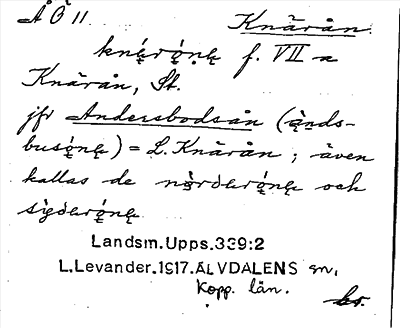 ÅÖ 11 Knärån.
knę́rǫ́nę f. VII a
Knärån, St.
jfr Andersbodsån (ånds-
busǫ́nę) = L. Knärån; även
kallas de nǫrdęrǫ́nę och
syðęrǫ́nę
Landsm. Upps. 339:2
L. Levander. 1917. ÄLVDALENS sn,
Kopp. län.